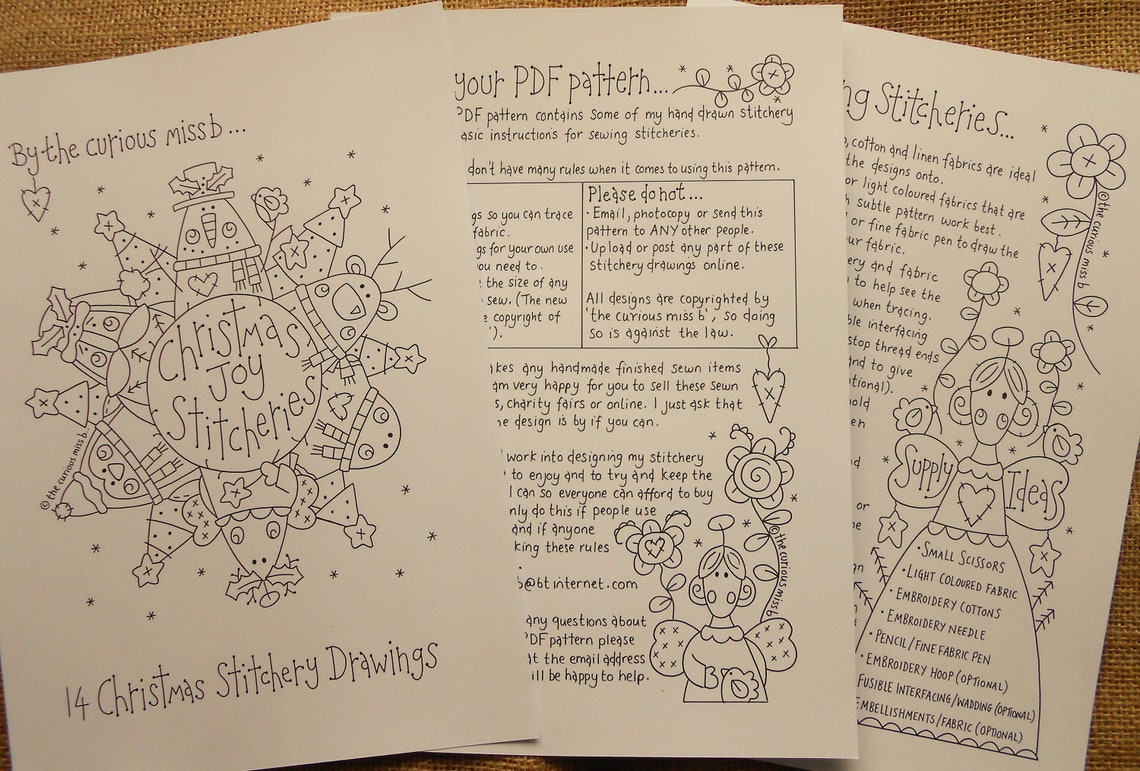 By the curious miss b...
Christmas
Joy
Stitcheries
© the curious miss b.
14 Christmas Stitchery Drawings
your PDF pattern...
PDF pattern contains some of my hand drawn stitchery
asic instructions for sewing stitcheries.
don't have many rules when it comes to using this pattern.
gs so you can trace
fabric.
gs for your own use
you need to.
the size of any
sew. (The new
e copyright of
').
Please do not...
• Email, photocopy or send this
pattern to ANY other people.
• Upload or post any part of these
stitchery drawings online.
All designs are copyrighted by
'the curious miss b', so doing
so is against the law.
akes any handmade finished sewn items
am very happy for you to sell these sewn
s, charity fairs or online. I just ask that
he design is by if you can.
work into designing my stitchery
to enjoy and to try and keep the
I can so everyone can afford to buy
nly do this if people use
and if anyone
king these rules
b@btinternet.com
any questions about
PDF pattern please
at the email address
ill be happy to help.
© the curious miss b
ng Stitcheries...
, cotton and linen fabrics are ideal
the designs onto.
or light coloured fabrics that are
h subtle pattern work best.
l or fine fabric pen to draw the
ur fabric.
ery and fabric
to help see the
when tracing.
ble interfacing
stop thread ends
and to give
tional).
old
en
d
or
he
an
© the curious miss b
Supply Ideas
• Small Scissors
• Light coloured fabric
• Embroidery cottons
• Embroidery needle
• Pencil/fine fabric pen
• Embroidery hoop (optional)
Fusible interfacing/wadding (optional)
Embellishments/fabric (optional)